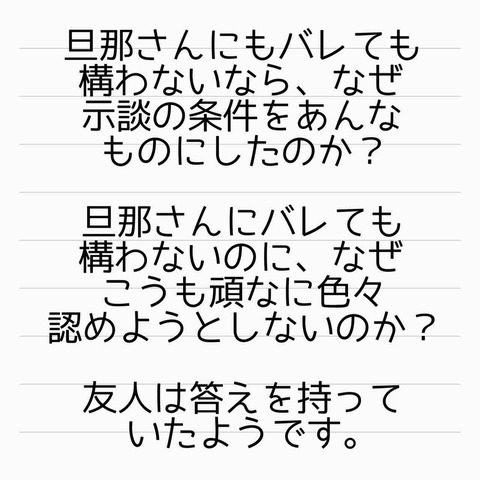 旦那さんにもバレても
構わないなら、なぜ
示談の条件をあんな
ものにしたのか？
旦那さんにバレても
構わないのに、なぜ
こうも頑なに色々
認めようとしないのか？
友人は答えを持って
いたようです。